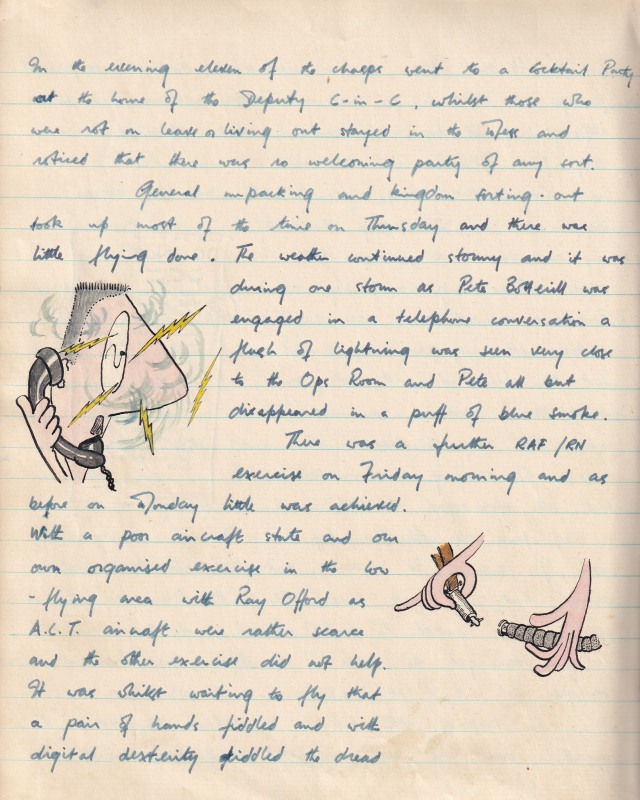 In the evening eleven of the chaps went to a Cocktail Party
at the home of the Deputy C-in-C, whilst those who
were not on leave or living out stayed in the Mess and
noticed that there was no welcoming party of any sort.
General unpacking and kingdom sorting-out
took up most of the time on Thursday and there was
little flying done. The weather continued stormy and it was
during one storm as Pete Botterill was
engaged in a telephone conversation a
flash of lightning was seen very close
to the Ops Room and Pete all but
disappeared in a puff of blue smoke.
There was a further RAF/RN
exercise on Friday morning and as
before on Monday little was achieved.
With a poor aircraft state and our
own organised exercise in the low
-flying area with Ray Offord as
A.L.T. aircraft were rather scarce
and the other exercise did not help.
It was whilst waiting to fly that
a pair of hands fiddled and with
digital dexterity fiddled the dread